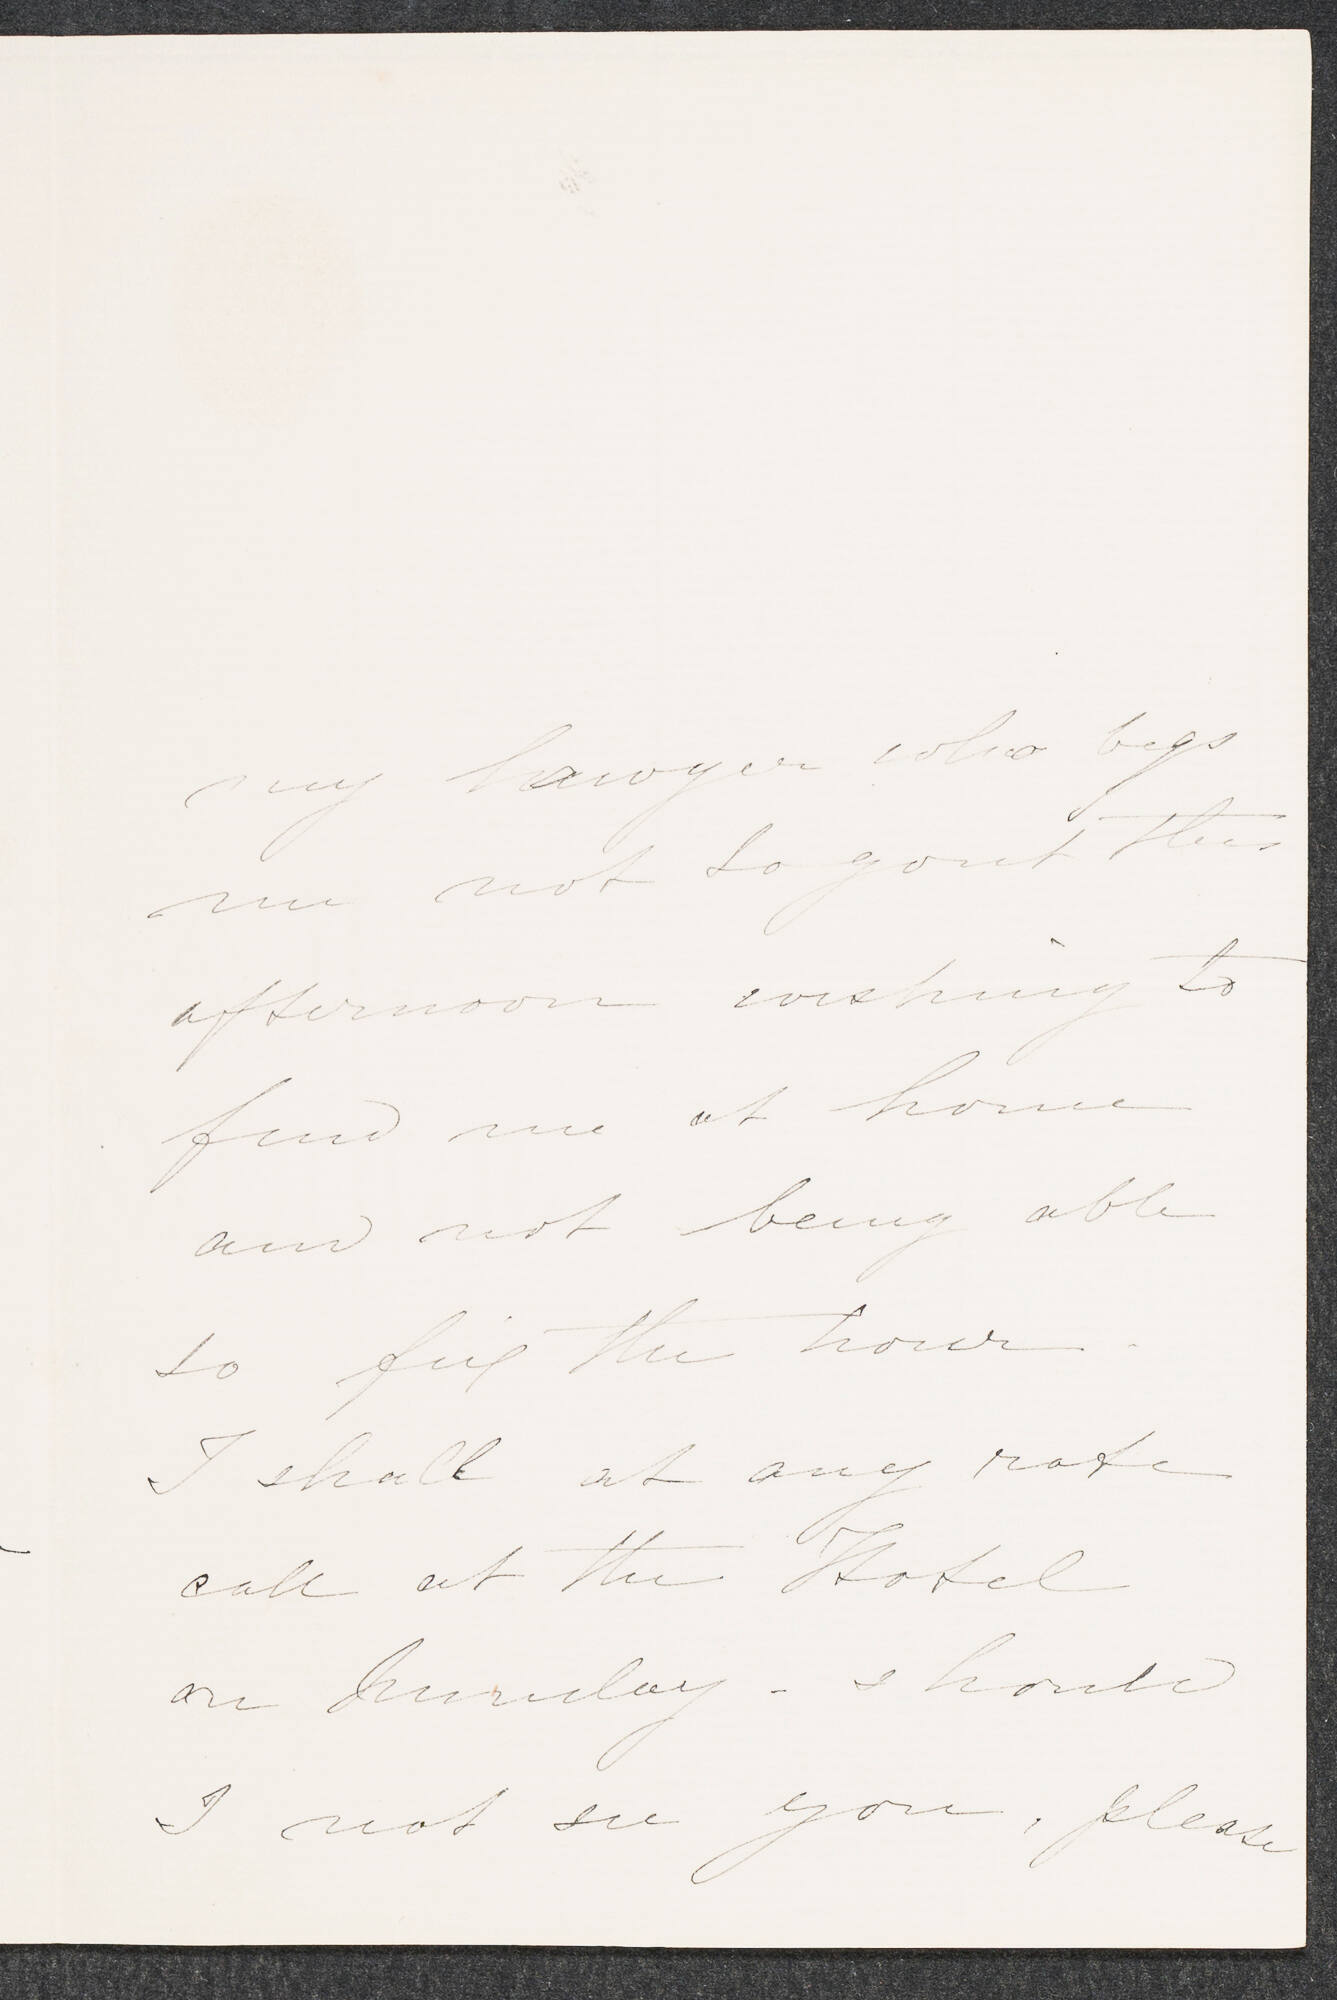 my lawyer who begs
me not to go out this
afternoon wishing to
find me at home
and not being able
to fix the hour.
I shall at any rate
call at the Hotel
on Sunday - should
I not see you, please